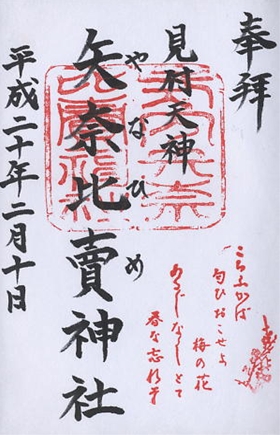 奉拝
見付天神
矢奈比賣神社
やなひめ
平成二十年二月十日
こちふかば
匂ひおこせよ
梅の花
あるじなしとて
春な忘れそ